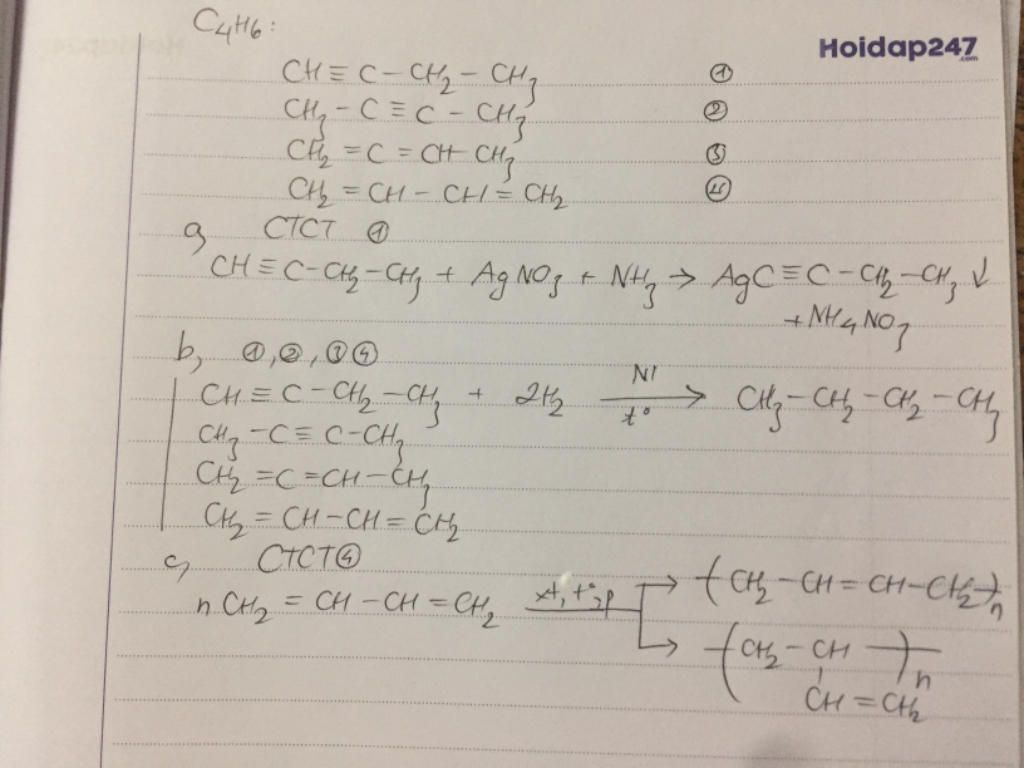 C₄H₆:
Hoidap247
.com
CH ≡ C – CH₂ – CH₃ ①
CH₃ – C ≡ C – CH₃ ②
CH₂ = C = CH – CH₃ ③
CH₂ = CH – CH = CH₂ ④
a, CTCT ①
CH ≡ C – CH₂ – CH₃ + AgNO₃ + NH₃ → AgC ≡ C – CH₂ – CH₃ ↓
+ NH₄NO₃
b, ①, ②, ③ ④
CH ≡ C – CH₂ – CH₃ + 2H₂ –Ni, t°→ CH₃ – CH₂ – CH₂ – CH₃
CH₃ – C ≡ C – CH₃
CH₂ = C = CH – CH₃
CH₂ = CH – CH = CH₂
c, CTCT ④
nCH₂ = CH – CH = CH₂ –xt, t°, p→ (CH₂ – CH = CH – CH₂)ₙ
→ (CH₂ – CH)ₙ
CH = CH₂